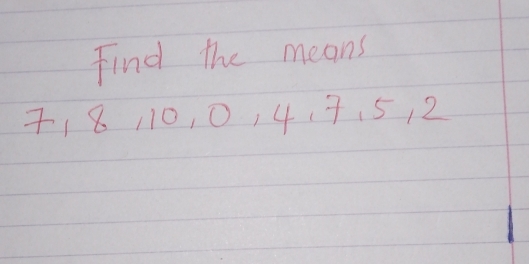 Find the means
7, 8, 10, 0, 4, 7, 5, 2